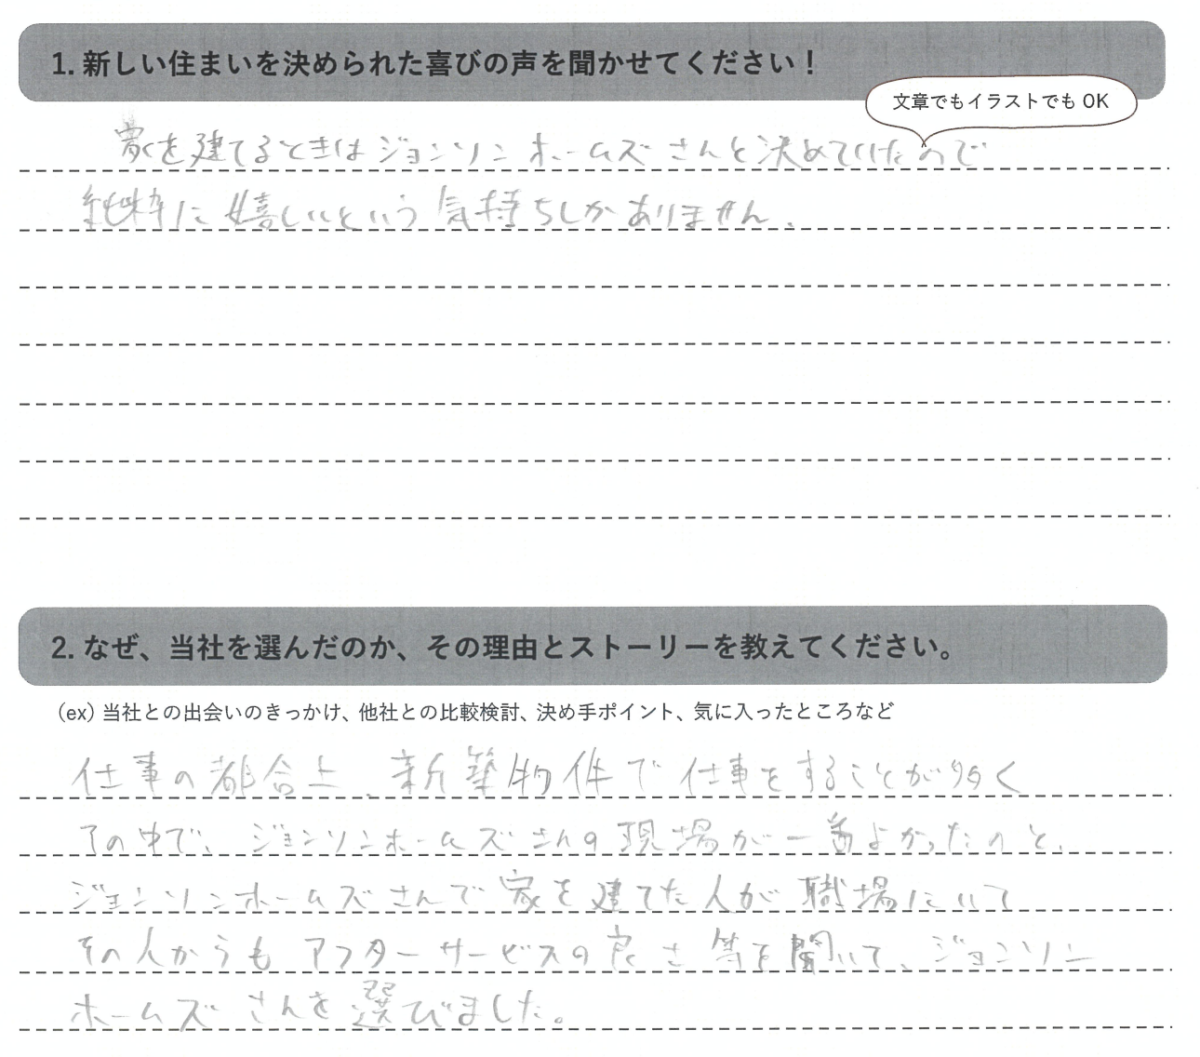 1. 新しい住まいを決められた喜びの声を聞かせてください！
文章でもイラストでもOK
家を建てるときはジョンソンホームズさんと決めていたので
純粋に嬉しいという気持ちしかありません。
2. なぜ、当社を選んだのか、その理由とストーリーを教えてください。
（ex）当社との出会いのきっかけ、他社との比較検討、決め手ポイント、気に入ったところなど
仕事の都合上、新築物件で仕事をすることが多く
その中で、ジョンソンホームズさんの現場が一番よかったのと、
ジョンソンホームズさんで家を建てた人が職場にいて
その人からもアフターサービスの良さ等を聞いて、ジョンソン
ホームズさんを選びました。